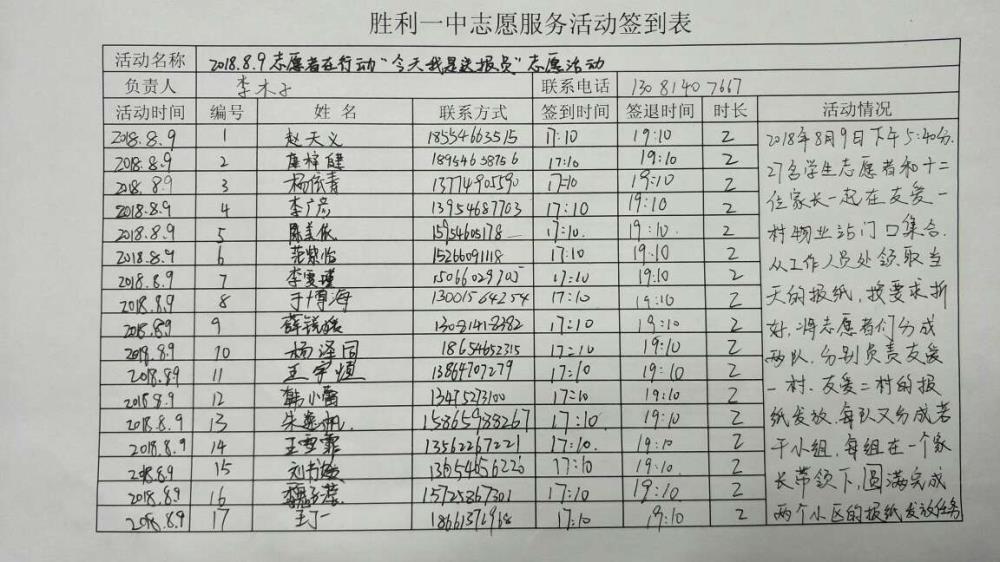 胜利一中志愿服务活动签到表
活动名称 2018.8.9志愿者在行动"今天我是送报员"志愿活动
负责人 李木子 联系电话 13081407667
活动时间 编号 姓名 联系方式 签到时间 签退时间 时长 活动情况
2018.8.9 1 赵天义 18554663515 17:10 19:10 2
2018.8.9 2 18954658756 17:10 19:10 2
2018.8.9 3 杨依青 13774905590 17:10 19:10 2
2018.8.9 4 李广彦 13954687703 17:10 19:10 2
2018.8.9 5 陈美依 15954605178 17:10 19:10 2
2018.8.9 6 范紫怡 15266091118 17:10 19:10 2
2018.8.9 7 李雯瑾 15066029705 17:10 19:10 2
2018.8.9 8 于博海 13001564254 17:10 19:10 2
2018.8.9 9 13081418382 17:10 19:10 2
2018.8.9 10 杨泽同 18654652315 17:10 19:10 2
2018.8.9 11 王宇恒 13864707279 17:10 19:10 2
2018.8.9 12 韩小蕾 13475273100 17:10 19:10 2
2018.8.9 13 朱逸帆 15865988267 17:10 19:10 2
2018.8.9 14 王雪霏 13562267221 17:10 19:10 2
2018.8.9 15 13654656226 17:10 19:10 2
2018.8.9 16 15725867301 17:10 19:10 2
2018.8.9 17 王丁一 17:10 19:10 2
2018年8月9日下午5:40分.
27名学生志愿者和十二
位家长一起在友爱一
村物业站门口集合.
从工作人员处领取当
天的报纸,按要求折
好,将志愿者们分成
两队,分别负责友爱
一村、友爱二村的报
纸发放.每队又分成若
干小组,每组在一个家
长带领下,圆满完成
两个小区的报纸发放任务